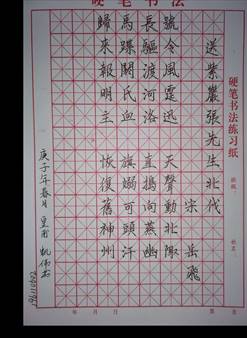 硬笔书法
硬笔书法练习纸
班级:
姓名:
送紫巖張先生北伐
宋 岳飛
號令風霆迅 天聲動北陬
長驅渡河洛 直搗向燕幽
馬蹀閼氏血 旗嫋可頭汗
歸來報明主 恢復舊神州
庚子年春月
年 月 日